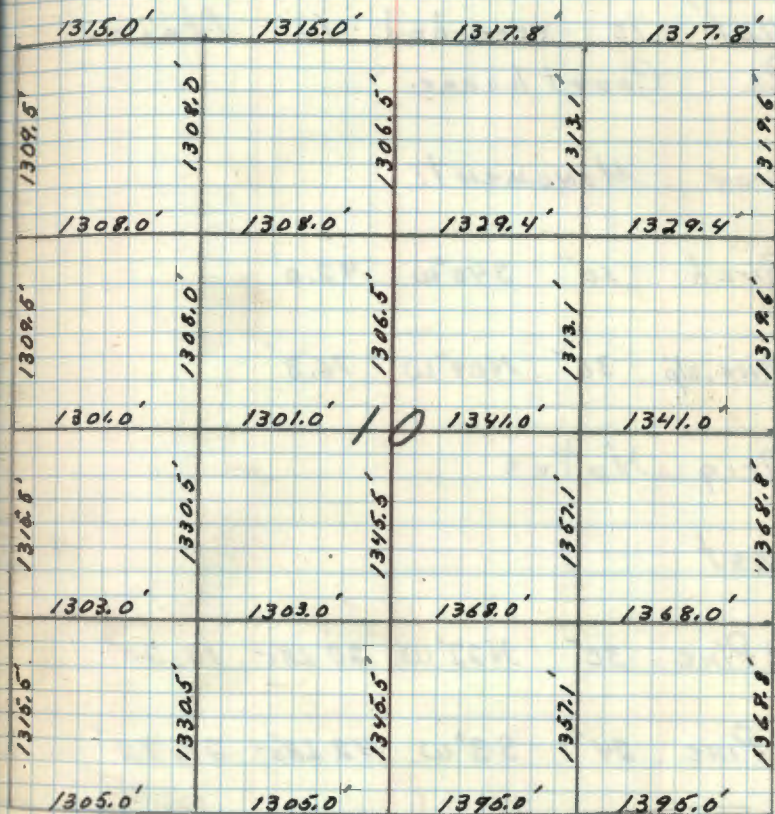 1315.0' 1315.0' 1317.8' 1317.8'
1309.5' 1308.0' 1306.5' 1313.1 1319.6'
1308.0' 1308.0' 1329.4' 1329.4'
1309.5' 1308.0' 1306.5' 1313.1' 1319.6'
1301.0' 1301.0' 10 1341.0' 1341.0'
1315.5' 1330.5' 1345.5' 1357.1' 1368.8'
1303.0' 1303.0' 1368.0' 1368.0'
1315.5' 1330.5' 1345.5' 1357.1' 1368.8'
1305.0' 1305.0' 1395.0' 1395.0'